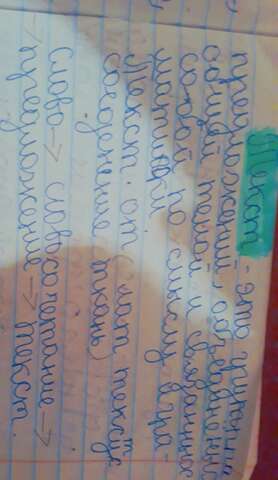 Текст - это группа
предложений, объединен
общей темой и связанных
собой по смыслу в гра-
матики
Текст от (лат. текстус
соединение ткань)
слово -> словосочетание ->
-> предложение -> текст.